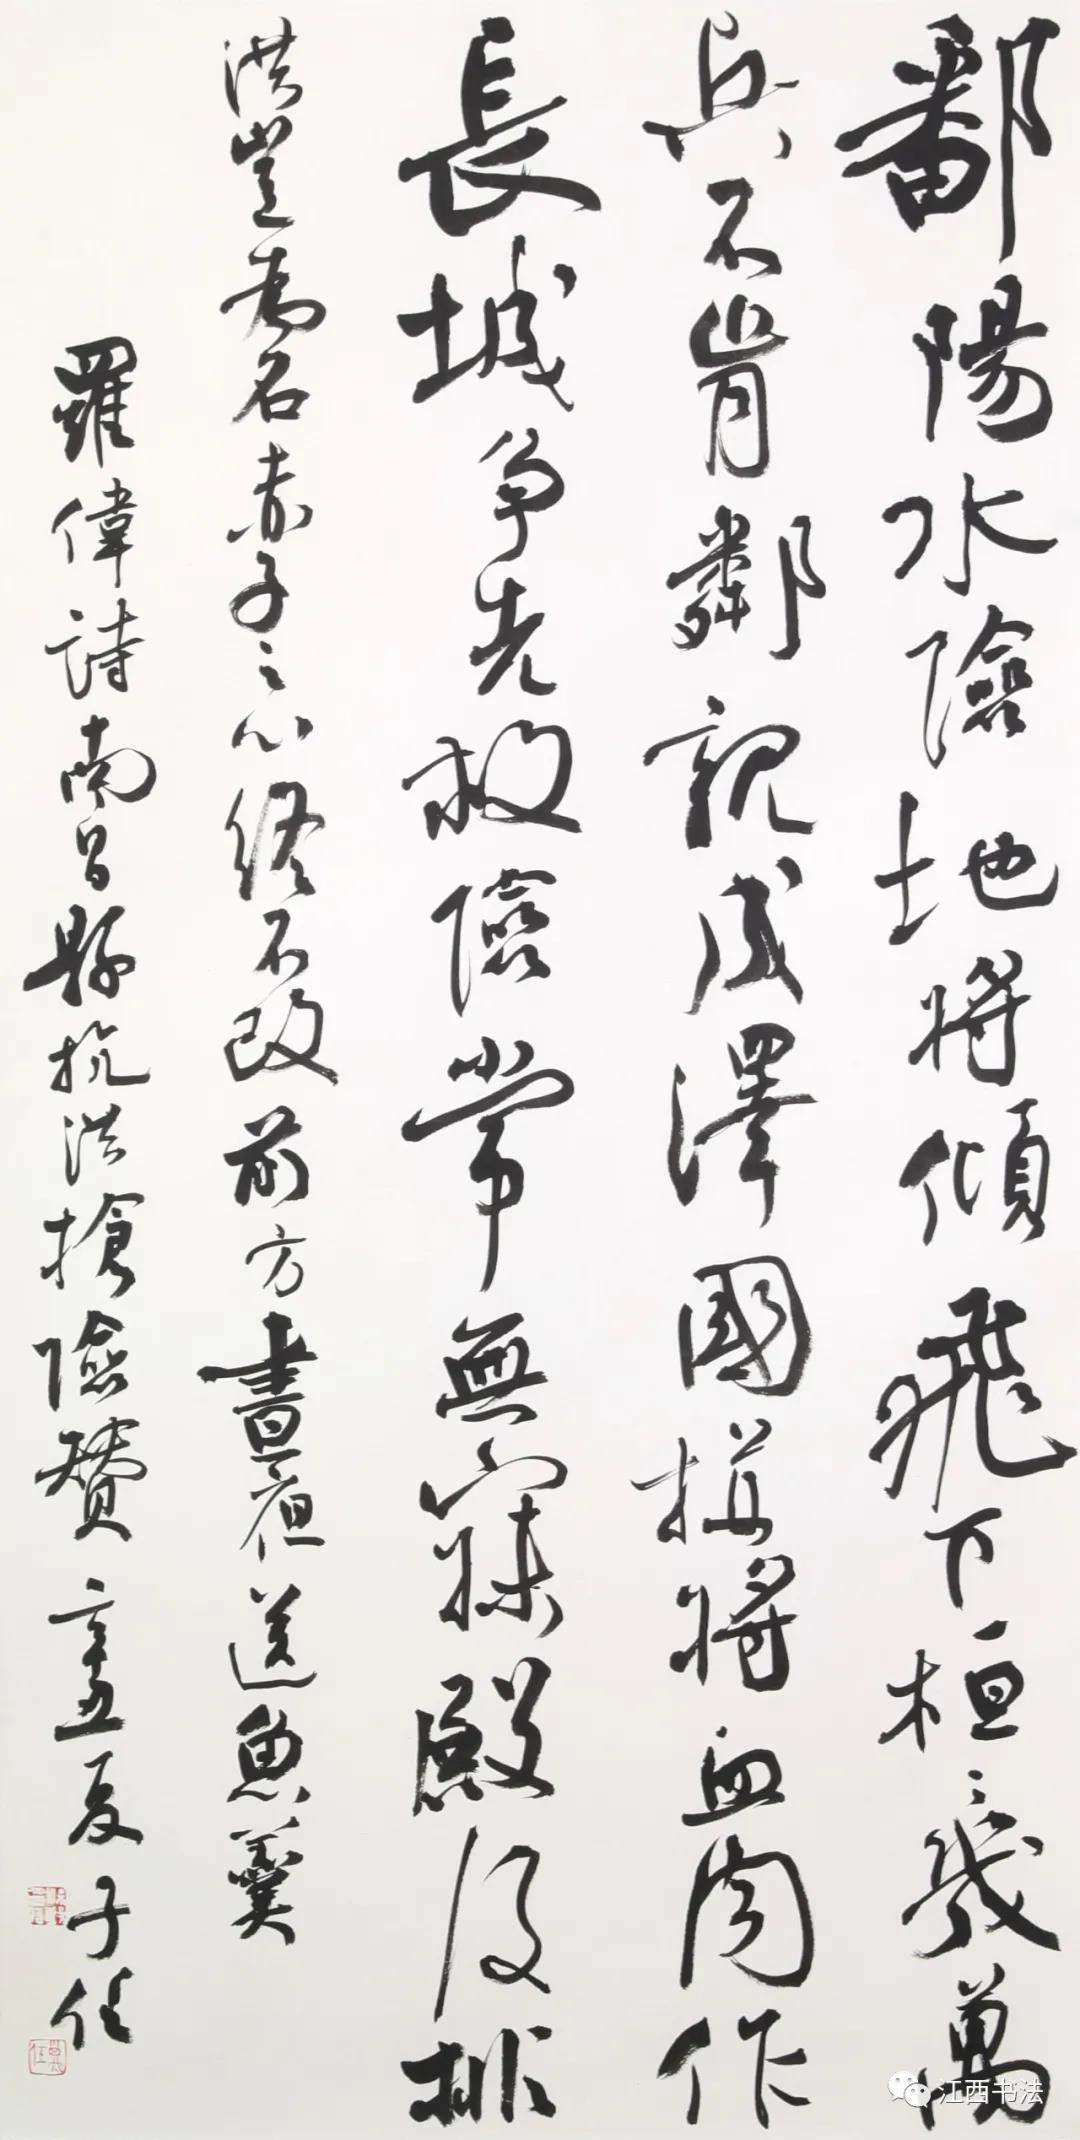 鄱陽水險地將傾飛下桓桓幾萬
兵不肯鄰親成澤國拚將血肉作
長城爭先救險常無寐殿後排
洪豈為名赤子之心終不改前方晝夜送魚羹
羅偉詩南昌縣抗洪搶險贊 辛丑夏子任
江西书法